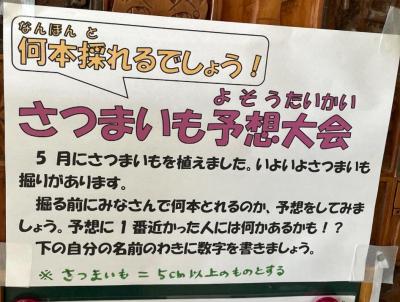 なんぼん と
何本採れるでしょう！
よそうたいかい
さつまいも予想大会
５月にさつまいもを植えました。いよいよさつまいも
掘りがあります。
掘る前にみなさんで何本とれるのか、予想をしてみま
しょう。予想に１番近かった人には何かあるかも！？
下の自分の名前のわきに数字を書きましょう。
※ さつまいも ＝ 5cm以上のものとする